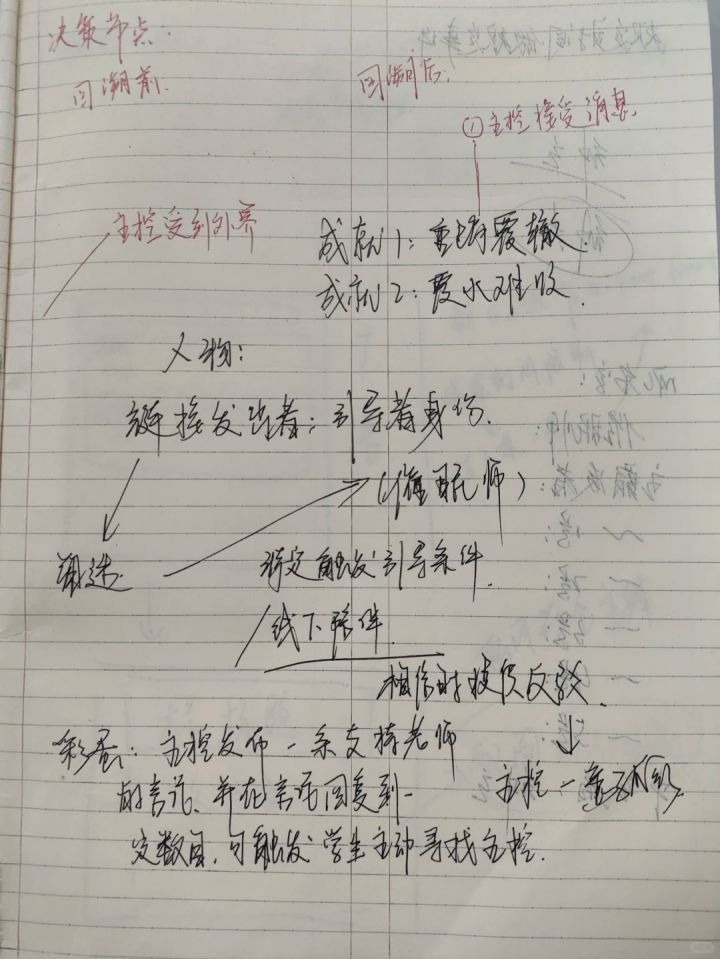 决策节点:
回溯前.
回溯后.
①主控接受消息
主控受到外界
成就1:重蹈覆辙.
成就2:覆水难收.
人物:
链接发出者:引导者身份.
(催眠师)
特定触发引导条件.
线下
相信时被侵
彩蛋:主控发布一条支持老师
的言论、并在言论回复到一
定数目,可触发学生主动寻找主控.
主控一